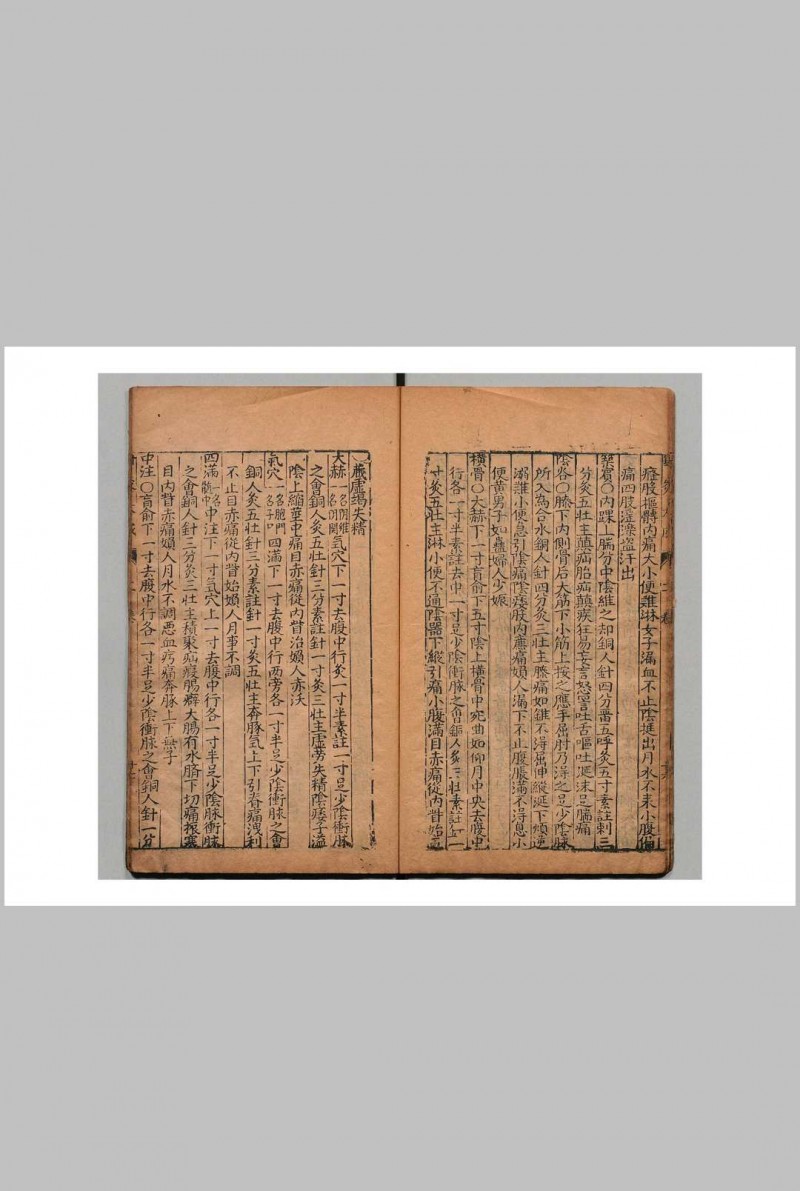 㿗股樞髀内痛大小便難淋女子漏血不止陰挺出月水不來小腹偏
痛四肢淫濼盜汗出
築賓〇内踝上腨分中陰維之郄銅人針四分留五呼灸五寸素註刺三
分灸五壯主㿗疝胎病顛疾狂易妄言怒詈吐舌嘔吐涎沫足腨痛
陰谷〇膝下内側骨后大筋下小筋上按之應手屈肘乃得之足少陰脉
所入為合水銅人針四分灸三壯主膝痛如錐不得屈伸縱涎下煩逆
溺難小便急引陰痛陰痿股内廉痛嬾人漏下不止腹脹滿不得息小
便黄男子如蠱婦人少娠
横骨〇大赫下一寸肓俞下五寸陰上横骨中宛曲如仰月中央去腹中
行各一寸半素註去中一寸足少陰衝脉之會銅人灸三壯素註針一
寸灸五壯主淋小便不通陰器下縱引痛小腹滿目赤痛從内眥始五
臟虛竭失精
大赫一名陰維一名陰関氣穴下一寸去腹中行灸一寸半素註一寸足少陰衝脉
之會銅人灸五壯針三分素註針一寸灸三壯主虛劳失精陰痿子溢
陰上縮莖中痛目赤痛從内眥治嬾人赤沃
氣穴一名胞門一名子户四滿下一寸去腹中行两旁各一寸半足少陰衝脉之會
銅人灸五壯針三分素註針一寸灸五壯主奔豚氣上下引脊痛洩利
不止目赤痛從内眥始嬾人月事不調
四滿一名髓中中注下一寸氣穴上一寸去腹中行各一寸半足少陰脉衝脉
之會銅人針三分灸三壯主積聚疝瘕腸癖大腸有水臍下切痛振寒
目内眥赤痛嬾人月水不調悪血㽲痛奔豚上下無子
中注〇肓俞下一寸去腹中行各一寸半足少陰衝脉之會銅人針一分